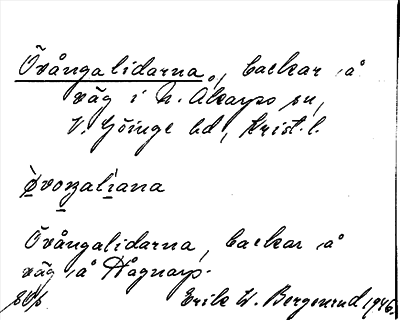 Övångalidarna, backar å
väg i N. Åkarps sn,
V. Göinge hd, Krist. l.
Övångalidarna, backar å
väg å Hågnarp.
Erik W. Bergenrud 1946.